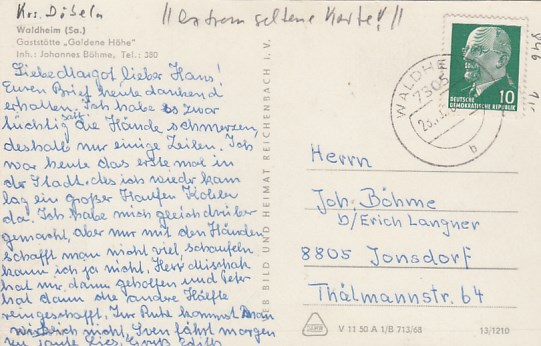 Krs. Döbeln
!!extrem seltene Karte!!
Waldheim (Sa.)
Gaststätte „Goldene Höhe“
Inh.: Johannes Böhme, Tel.: 380
Liebe Margot lieber Hans!
Euren Brief heute dankend
erhalten. Ich habe zwar
tüchtig die Hände schmerzen,
deshalb nur einige Zeilen. Ich
war heute das erste mal in
der Stadt, des ich wieder kam
lag ein großer Haufen Kohlen
da. Ich habe mich gleich drüber
gemacht, aber nur mit den Händen
schafft man nicht viel, schaufeln
kann ich ja nicht, Herr Mischak
hat mir dann geholfen und Peter
hat dann die andre Hälfte
reingeschafft. Zur Ruhe kommt man
wirklich nicht, Sven fährt morgen
Gruß Edith
EB BILD UND HEIMAT REICHENBACH i. V.
WALDHE
7305
b
DEUTSCHE
DEMOKRATISCHE REPUBLIK
10
Herrn
Joh. Böhme
b/Erich Langner
8805 Jonsdorf
Thälmannstr. 64
V 11 50 A 1/B 713/68
13/1210